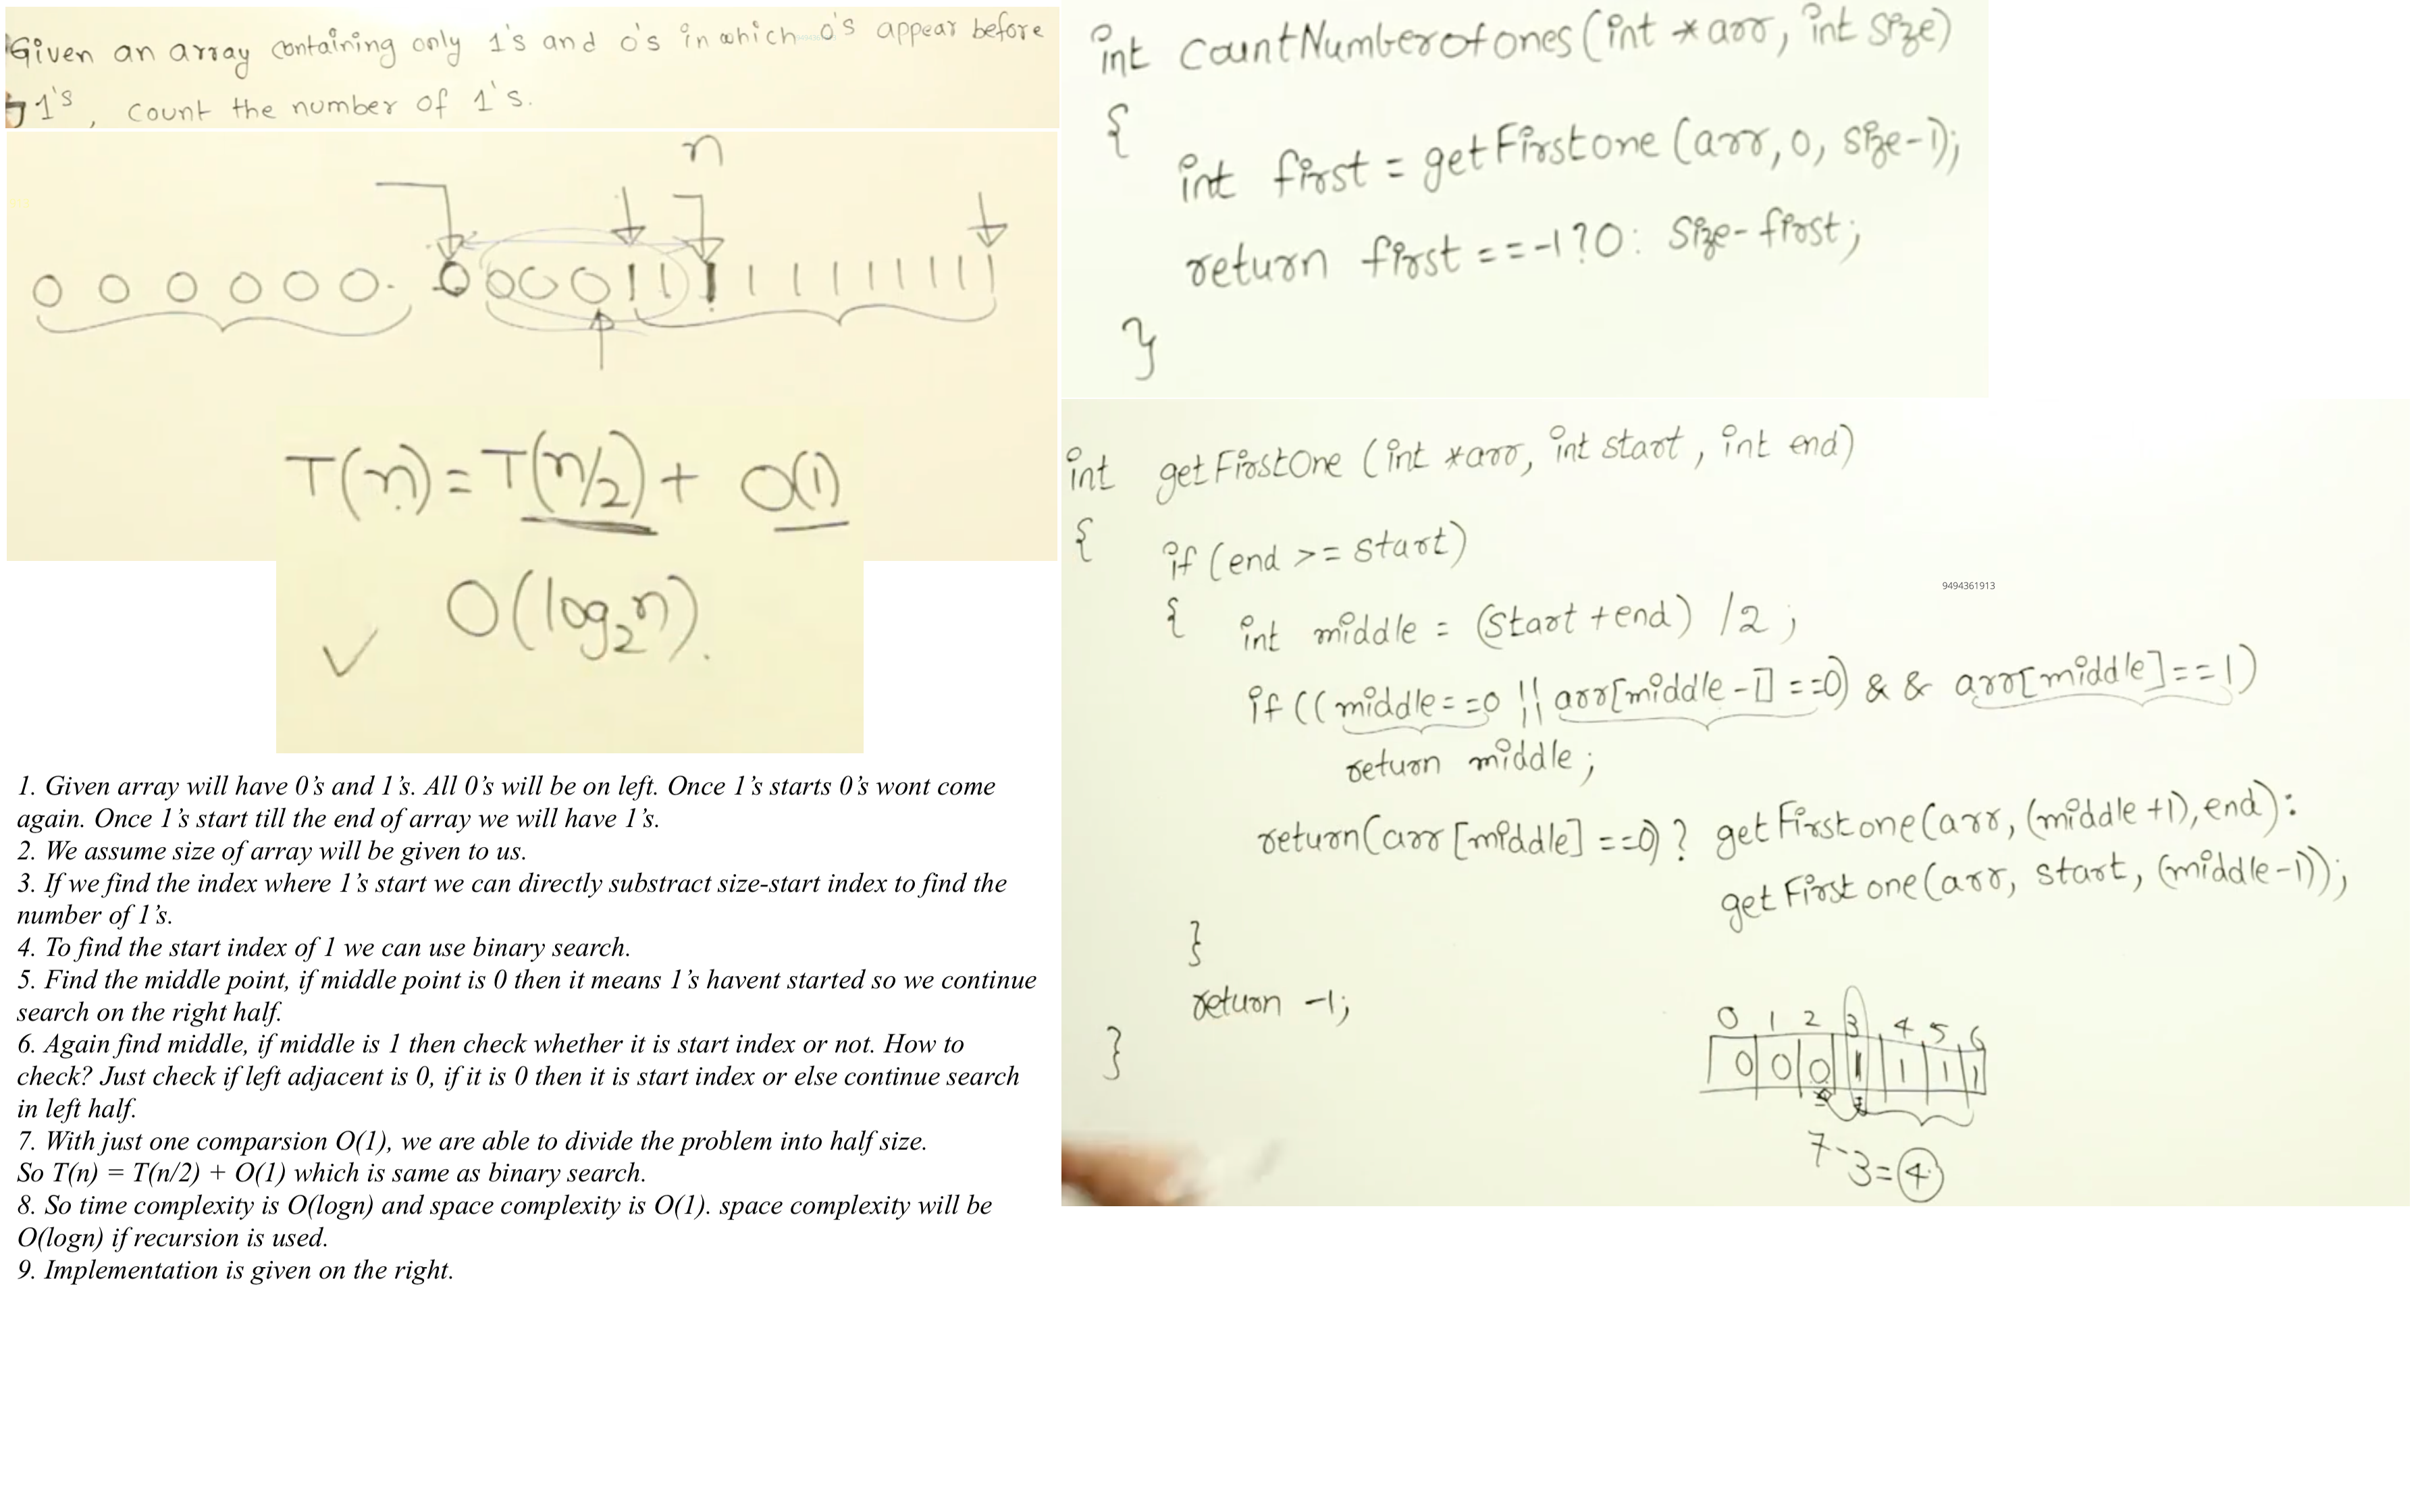 Given an array containing only 1's and 0's in which 0's appear before
1's, count the number of 1's.
n
0 0 0 0 0 0 . 0 0 0 0 1 1 1 1 1 1 1 1 1 1
T(n) = T(n/2) + O(1)
O(log₂n).
1. Given array will have 0’s and 1’s. All 0’s will be on left. Once 1’s starts 0’s wont come
again. Once 1’s start till the end of array we will have 1’s.
2. We assume size of array will be given to us.
3. If we find the index where 1’s start we can directly substract size-start index to find the
number of 1’s.
4. To find the start index of 1 we can use binary search.
5. Find the middle point, if middle point is 0 then it means 1’s havent started so we continue
search on the right half.
6. Again find middle, if middle is 1 then check whether it is start index or not. How to
check? Just check if left adjacent is 0, if it is 0 then it is start index or else continue search
in left half.
7. With just one comparsion O(1), we are able to divide the problem into half size.
So T(n) = T(n/2) + O(1) which is same as binary search.
8. So time complexity is O(logn) and space complexity is O(1). space complexity will be
O(logn) if recursion is used.
9. Implementation is given on the right.
int CountNumberofones(int *arr, int size)
{
int first = getFirstone(arr, 0, size-1);
return first == -1 ? 0 : size-first;
}
int getFirstOne (int *arr, int start, int end)
{
if (end >= start)
{ int middle = (start + end) /2;
if ((middle == 0 || arr[middle-1] == 0) && arr[middle] == 1)
return middle;
return (arr[middle] == 0) ? getFirstone(arr, (middle+1), end):
getFirstone(arr, start, (middle-1));
}
return -1;
}
9494361913
0 1 2 3 4 5 6
0 0 0 1 1 1 1
7-3=4